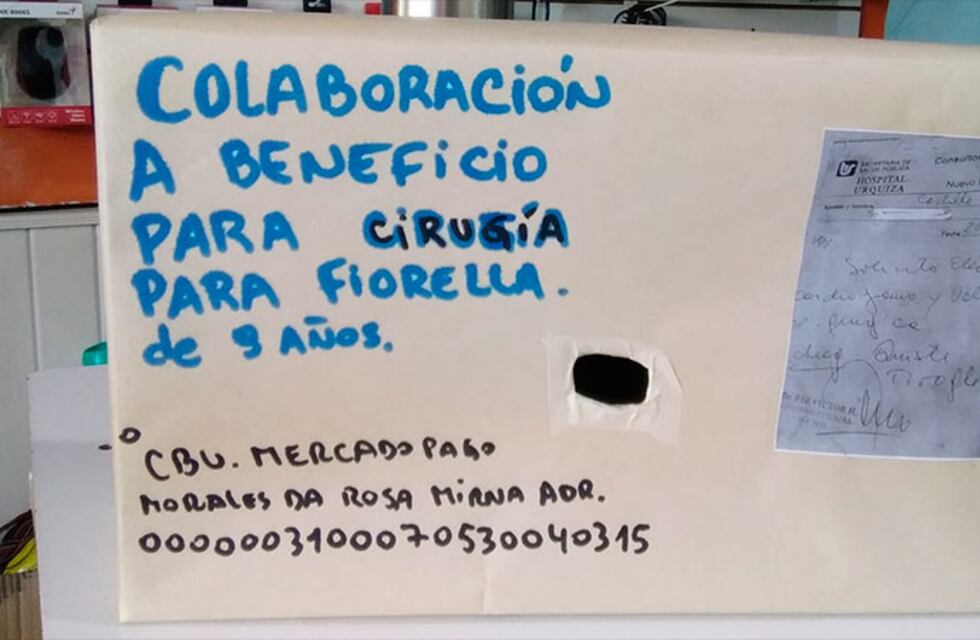 COLABORACIÓN
A BENEFICIO
PARA CIRUGÍA
PARA FIORELLA.
de 9 AÑOS.
CBU. MERCADO PAGO
MORALES DA ROSA MIRNA ADR.
0000003100070530040315
SECRETARIA DE
SALUD PUBLICA
HOSPITAL
URQUIZA
Consultor
Nuevo
Apellido y nombre
Fecha
Solicito